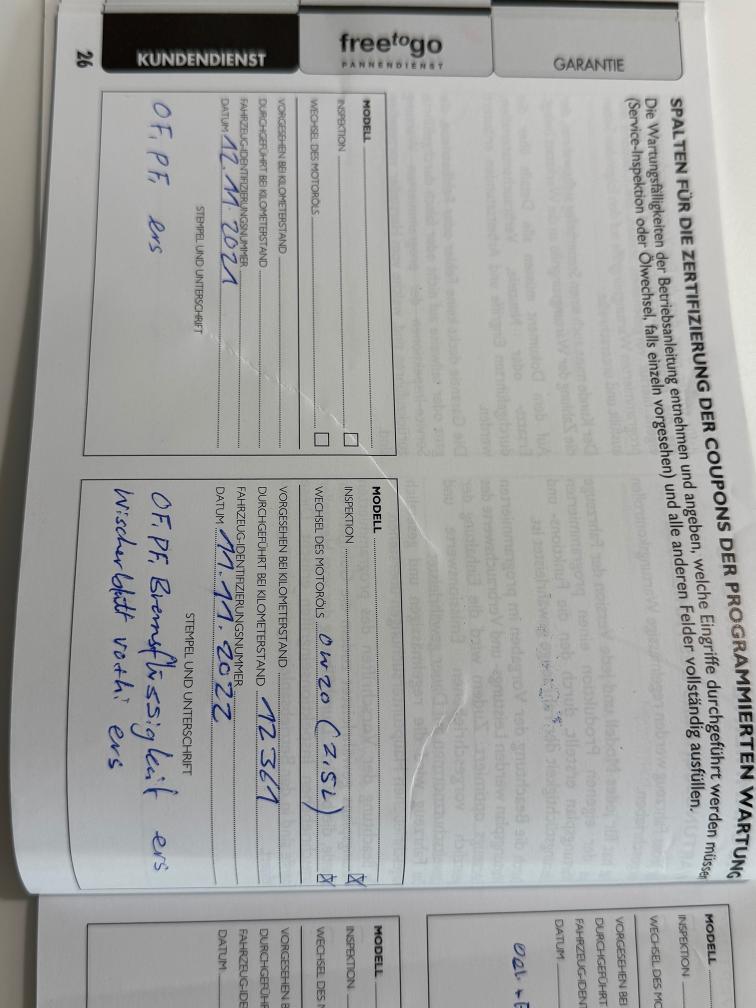 26
KUNDENDIENST
freetogo
PANNENDIENST
GARANTIE
SPALTEN FÜR DIE ZERTIFIZIERUNG DER COUPONS DER PROGRAMMIERTEN WARTUNG
Die Wartungsfälligkeiten der Betriebsanleitung entnehmen und angeben, welche Eingriffe durchgeführt werden müssen
(Service-Inspektion oder Ölwechsel, falls einzeln vorgesehen) und alle anderen Felder vollständig ausfüllen.
MODELL
INSPEKTION
WECHSEL DES MOTORÖLS
VORGESEHEN BEI KILOMETERSTAND
DURCHGEFÜHRT BEI KILOMETERSTAND
FAHRZEUG-IDENTIFIZIERUNGSNUMMER
DATUM 12.11.2021
STEMPEL UND UNTERSCHRIFT
OF, PF, ers
MODELL
INSPEKTION
WECHSEL DES MOTORÖLS 0W20 (2,5L)
VORGESEHEN BEI KILOMETERSTAND
DURCHGEFÜHRT BEI KILOMETERSTAND 12361
FAHRZEUG-IDENTIFIZIERUNGSNUMMER
DATUM 11.11.2022
STEMPEL UND UNTERSCHRIFT
OF, PF, Bremsflüssigkeit ers
Wischerblatt vo+hi ers
MODELL
INSPEKTION
WECHSEL DES M
VORGESEHEN BE
DURCHGEFÜHRT
FAHRZEUG-IDENT
DATUM
MODELL
INSPEKTION
WECHSEL DES M
VORGESEHEN B
DURCHGEFÜHR
FAHRZEUG-IDE
DATUM